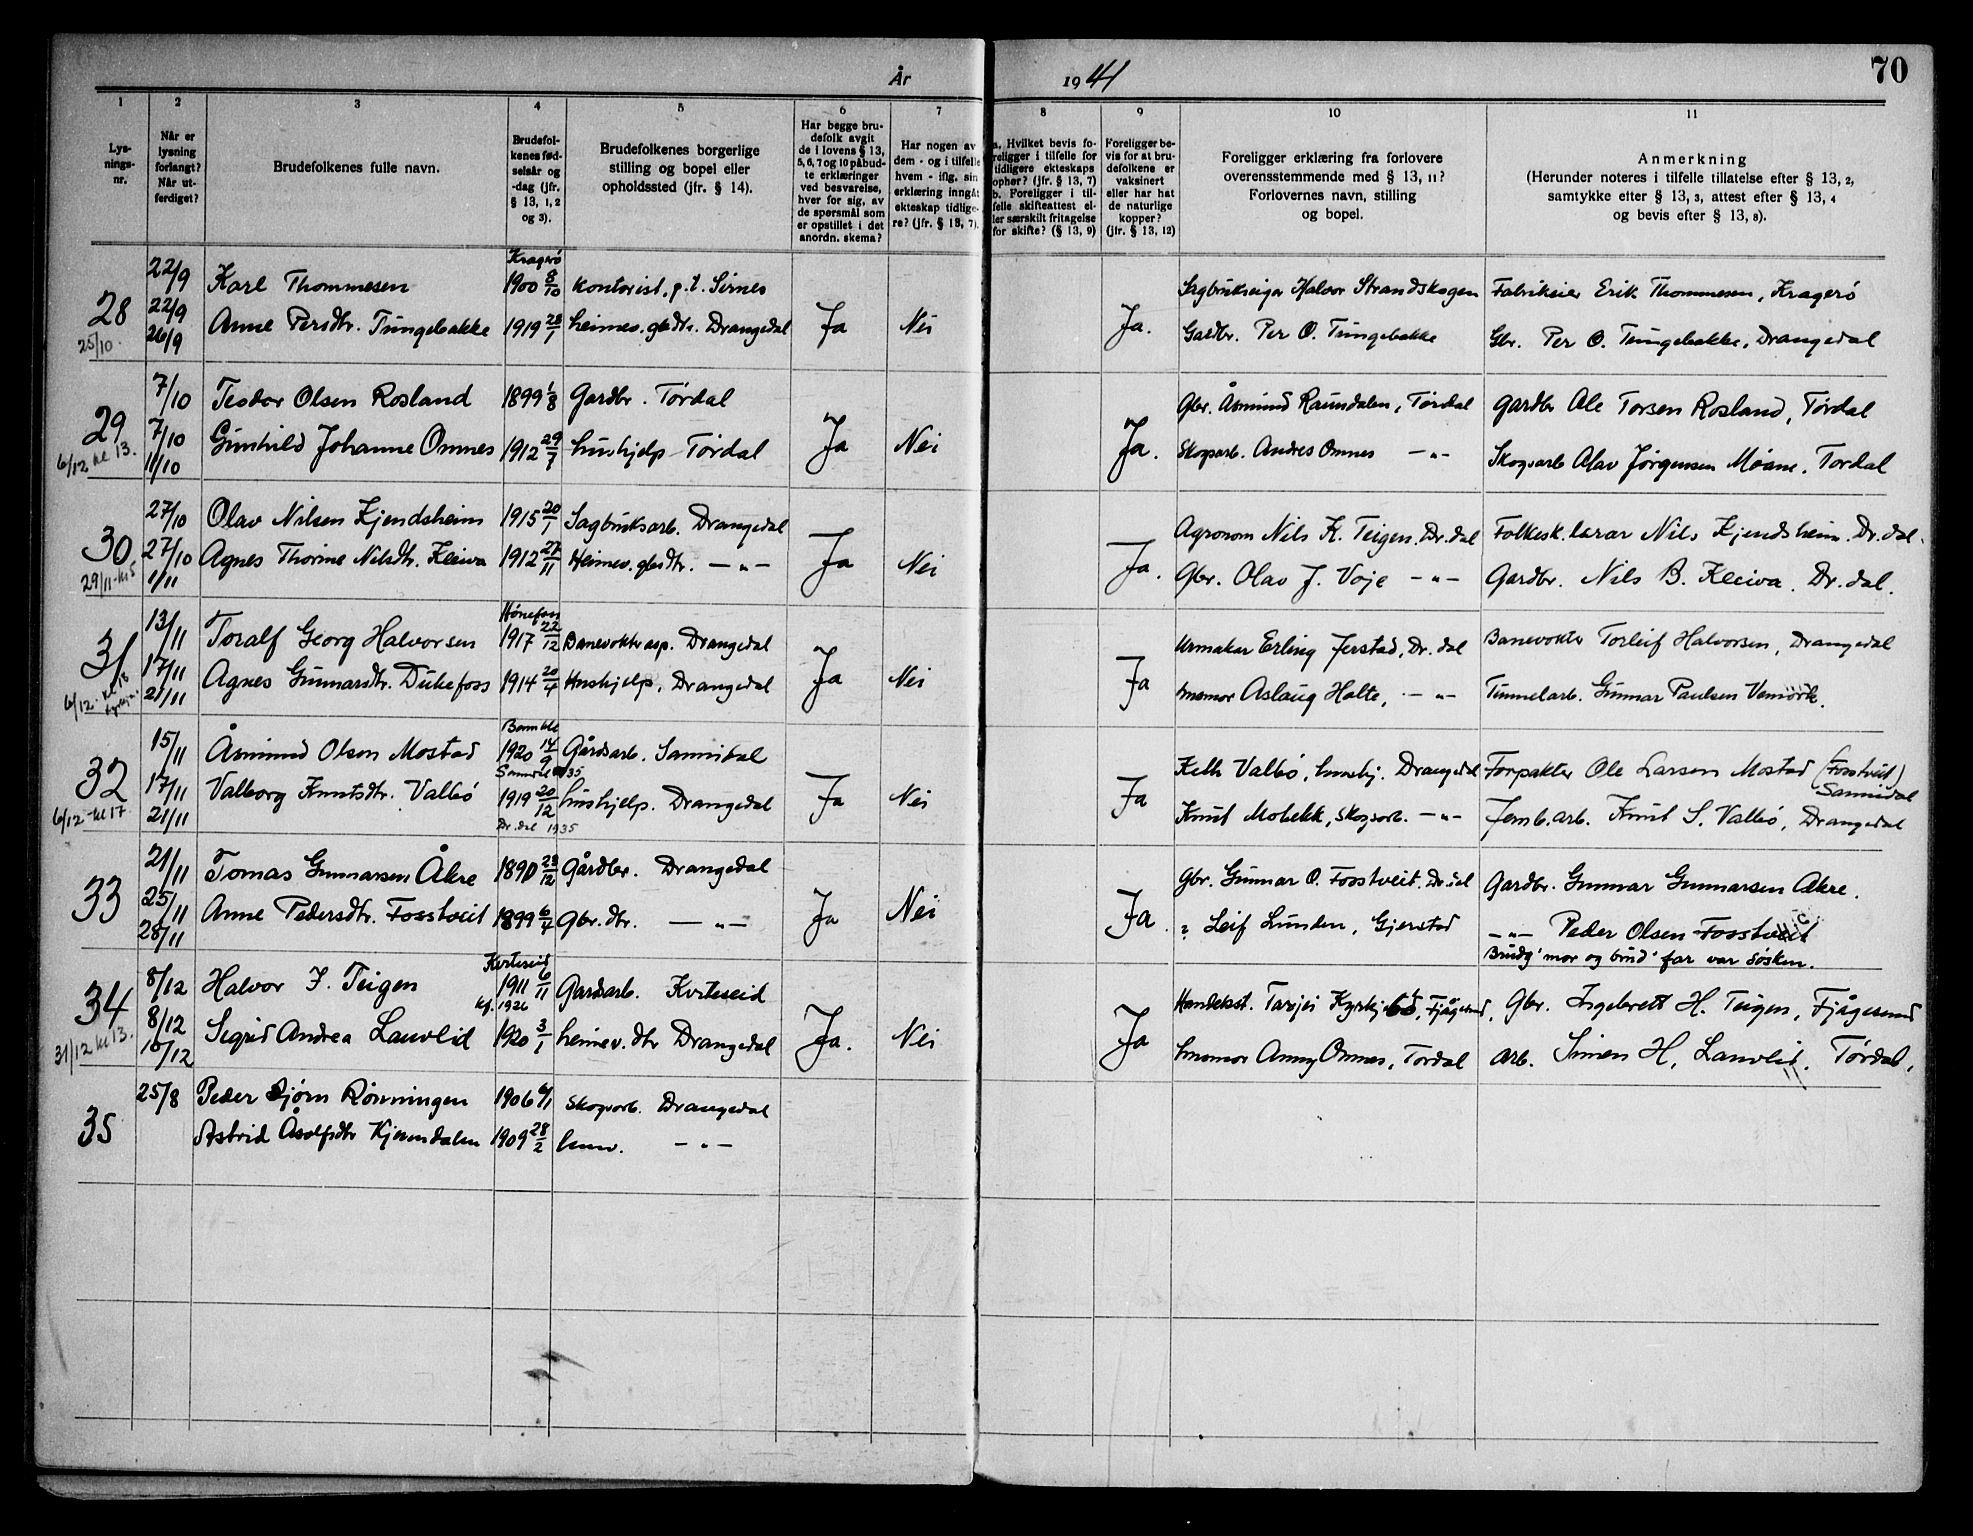 År 1941
70
1 2 3 4 5 6 7 8 9 10 11
Lys-
nings-
nr.
Når er
lysning
forlangt?
Når ut-
ferdiget?
Brudefolkenes fulle navn.
Brudefol-
kenes fød-
selsår og
-dag (jfr.
§ 13, 1, 2
og 3).
Brudefolkenes borgerlige
stilling og bopel eller
opholdssted (jfr. § 14).
Har begge bru-
defolk avgit
de i lovens § 13,
5, 6, 7 og 10 påbud-
te erklæringer
ved besvarelse,
hver for sig, av
de spørsmål som
er opstillet i det
anordn. skema?
Har nogen av
dem - og i tilfelle
hvem - iflg. sin
erklæring inngåt
ekteskap tidlige-
re? (jfr. § 13, 7).
a. Hvilket bevis fo-
religger i tilfelle for
tidligere ekteskaps
ophør? (jfr. § 13, 7)
b. Foreligger i til-
felle skifteattest el-
ler særskilt fritagelse
for skifte? (§ 13, 9)
Foreligger be-
vis for at bru-
defolkene er
vaksinert
eller har hat
de naturlige
kopper?
(jfr. § 13, 12)
Foreligger erklæring fra forlovere
overensstemmende med § 13, 11?
Forlovernes navn, stilling
og bopel.
Anmerkning
(Herunder noteres i tilfelle tillatelse efter § 13, 2,
samtykke efter § 13, 3, attest efter § 13, 4
og bevis efter § 13, 8).
Kragerø
22/9 Karl Thommesen 1900 8/10 kontorist, p.t. Sirnes Sagbrukseiger Halvor Strandskogen Fabrikeier Erik Thommesen, Kragerø
28 22/9 Anne Persdtr. Tungebakke 1919 28/1 heimev. gbdtr. Drangedal Ja Nei Ja. Gardbr. Per O. Tungebakke Gbr. Per O. Tungebakke, Drangedal
25/10. 26/9
7/10 Teodor Olsen Rosland 1899 1/8 Gardbr. Tørdal Gbr. Åsmund Raundalen, Tørdal Gardbr Ole Torsen Rosland, Tørdal
29 7/10 Gunhild Johanne Omnes 1912 29/7 hushjelp Tørdal Ja Nei Ja. Skogsarb. Andres Omnes — „ — Skogsarb Olav Jørgensen Moane. Tørdal
6/12 kl 13. 11/10
27/10 Olav Nilsen Kjendsheim 1915 20/1 Sagbruksarb. Drangedal Agronom Nils K. Teigen. Dr.dal Folkesk.lærar Nils Kjendsheim. Dr.dal.
30 27/10 Agnes Thorine Nilsdtr. Kleiva 1912 27/11 Heimev. gbdtr. — „ — Ja Nei Ja. Gbr. Olav J. Voje — „ — Gardbr. Nils B. Kleiva. Dr.dal.
29/11 kl 5 1/11
Hønefoss
13/11 Toralf Georg Halvorsen 1917 22/12 Banevokterasp. Drangedal Urmakar Erling Jerstad, Dr.dal Banevokter Torleif Halvorsen, Drangedal
31 17/11 Agnes Gunnarsdtr. Dukefoss 1914 20/4 Hushjelp, Drangedal Ja Nei Ja husmor Aslaug Holte, — „ — Tunnelarb. Gunnar Paulsen Vemork.
6/12 - kl 18 21/11
Bamble
15/11 Åsmund Olson Mostad 1920 14/9 Gårdsarb. Sannidal Valbø, hushj. Drangedal Forpakter Ole Larsen Mostad (Fosstveit)
Sannidal
32 17/11 Valborg Knutsdtr. Valbø 1919 20/12 hushjelp. Drangedal Ja Nei Ja Knut Mobekk, skogsarb. — „ — Jernb.arb. Knut S. Valbø, Drangedal
6/12 - kl 17 21/11 Dr.dal 1935
21/11 Tomas Gunnarsen Åkre 1890 29/12 Gårdbr. Drangedal Gbr. Gunnar O. Fosstveit. Dr.dal Gardbr. Gunnar Gunnarsen Åkre.
33 25/11 Anne Pedersdtr. Fosstveit 1899 6/4 Gbr.dtr. — „ — Ja Nei Ja. Leif Lunden, Gjerstad — „ — Peder Olsen Fosstveit
28/11 Brudg' mor og brud' far var søsken.
Kviteseid
8/12 Halvor I. Teigen 1911 6/11 Gardsarb. Kviteseid Handelsst. Tarjei Kyrkjebø, Fjågesund, Gbr. Ingebrett H. Teigen, Fjågesund
kf. 1926
34 8/12 Sigrid Andrea Lauvlid 1920 3/1 heimev. dtr Drangedal Ja. Nei Ja husmor Anny Omnes, Tørdal arb. Simen H. Lauvlid. Tørdal.
31/12 kl 13. 10/12
25/8 Peder Bjørn Rønningen 1906 6/1 Skogsarb. Drangedal
35 Astrid Åsolfsdtr Kjosendalen 1909 28/2 hmv. — „ —